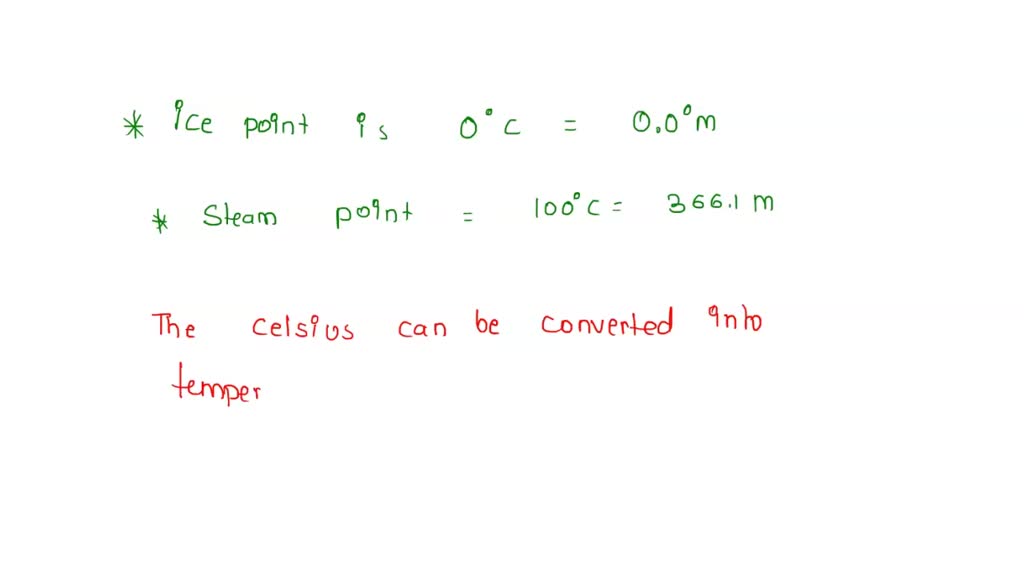 * Ice point is 0°C = 0.0°m
* Steam point = 100°C = 366.1 m
The celsius can be converted into
temper